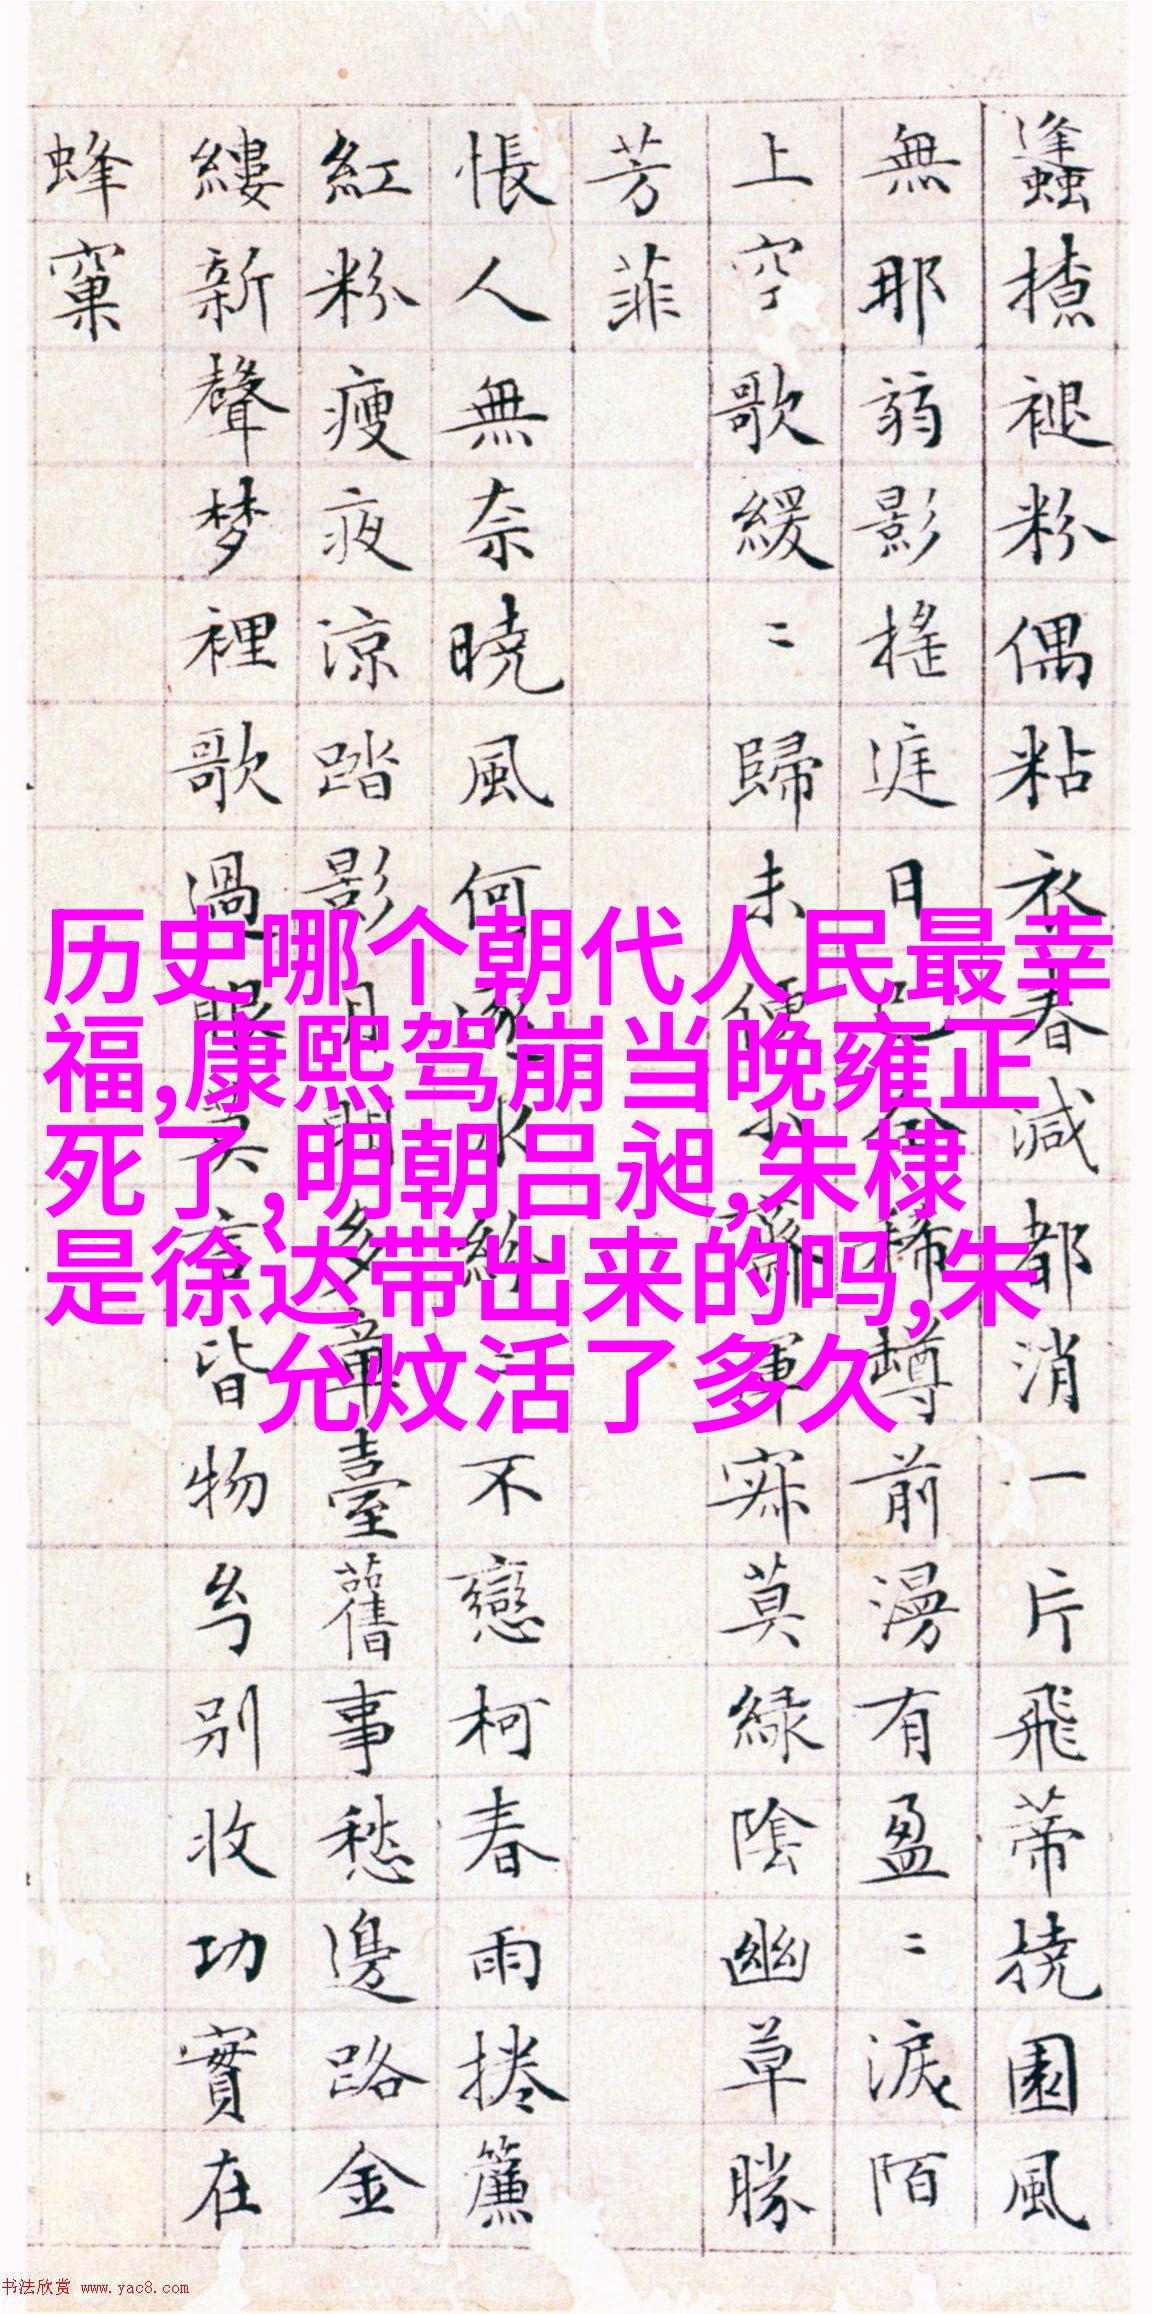 蠭揸褪粉偶粘衣春減都消一片飛蒂撓園風
無那弱影搖遅日
前漫有盈二淚陌
上空歌緩二歸未
寂莫緑陰幽草勝
芳菲
悵人無奈曉風何逐水
不戀柯春雨捲簾
紅粉瘦夜涼踏影月
多章臺舊事愁邊路金
縷新聲梦裡歌過眼莫言皆物兮别收功實在
蜂窠
历史哪个朝代人民最幸
福,康熙驾崩当晚雍正
死了,明朝吕昶,朱棣
是徐达带出来的吗,朱
允炆活了多久
书法欣赏 www.yac8.com